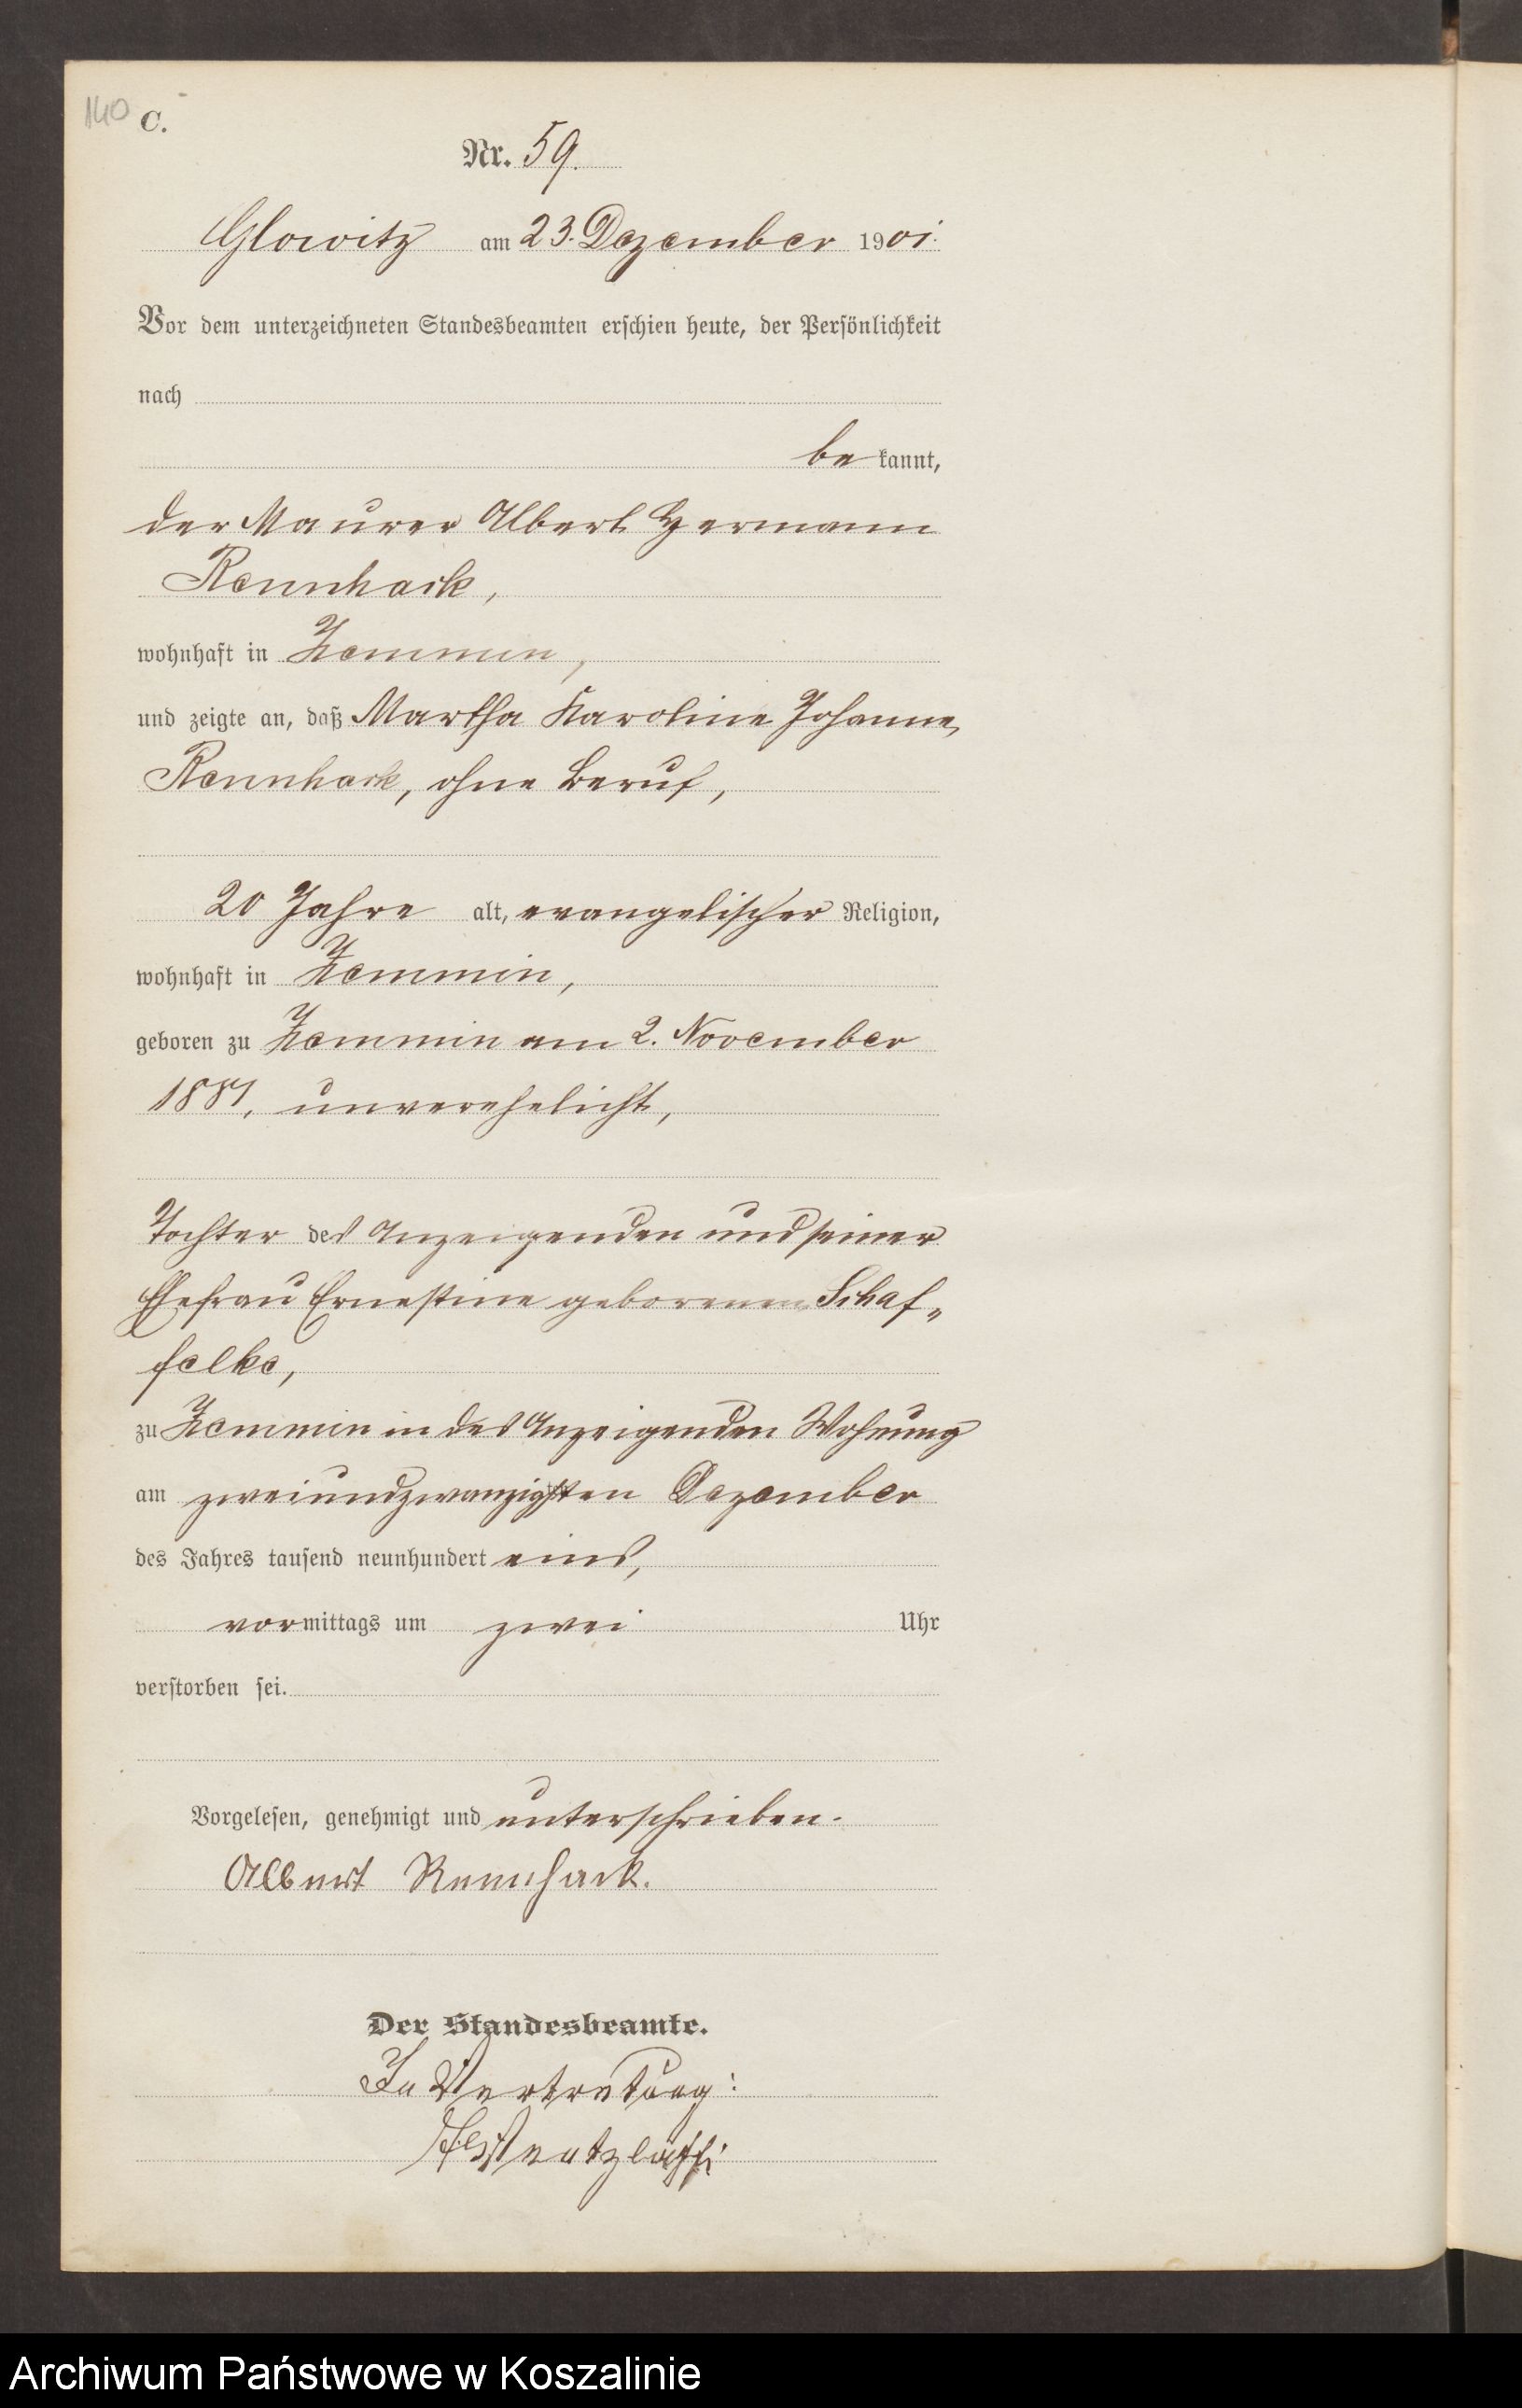 140
C.
Nr. 59.
Glowitz am 23. Dezember 1901.
Vor dem unterzeichneten Standesbeamten erschien heute, der Persönlichkeit
nach
be kannt,
der Maurer Albert Hermann
Rennhack,
wohnhaft in Zemmin,
und zeigte an, daß Martha Karoline Johanne
Rennhack, ohne Beruf,
20 Jahre alt, evangelischer Religion,
wohnhaft in Zemmin,
geboren zu Zemmin am 2. November
1881, unverehelicht,
Tochter des Anzeigenden und seiner
Ehefrau Ernestine geborenen Schaf„
felke,
zu Zemmin in des Anzeigenden Wohnung
am zweiundzwanzigsten Dezember
des Jahres tausend neunhundert eins,
vormittags um zwei Uhr
verstorben sei.
Vorgelesen, genehmigt und unterschrieben.
Albert Rennhack.
Der Standesbeamte.
In Vertretung:
Archiwum Państwowe w Koszalinie